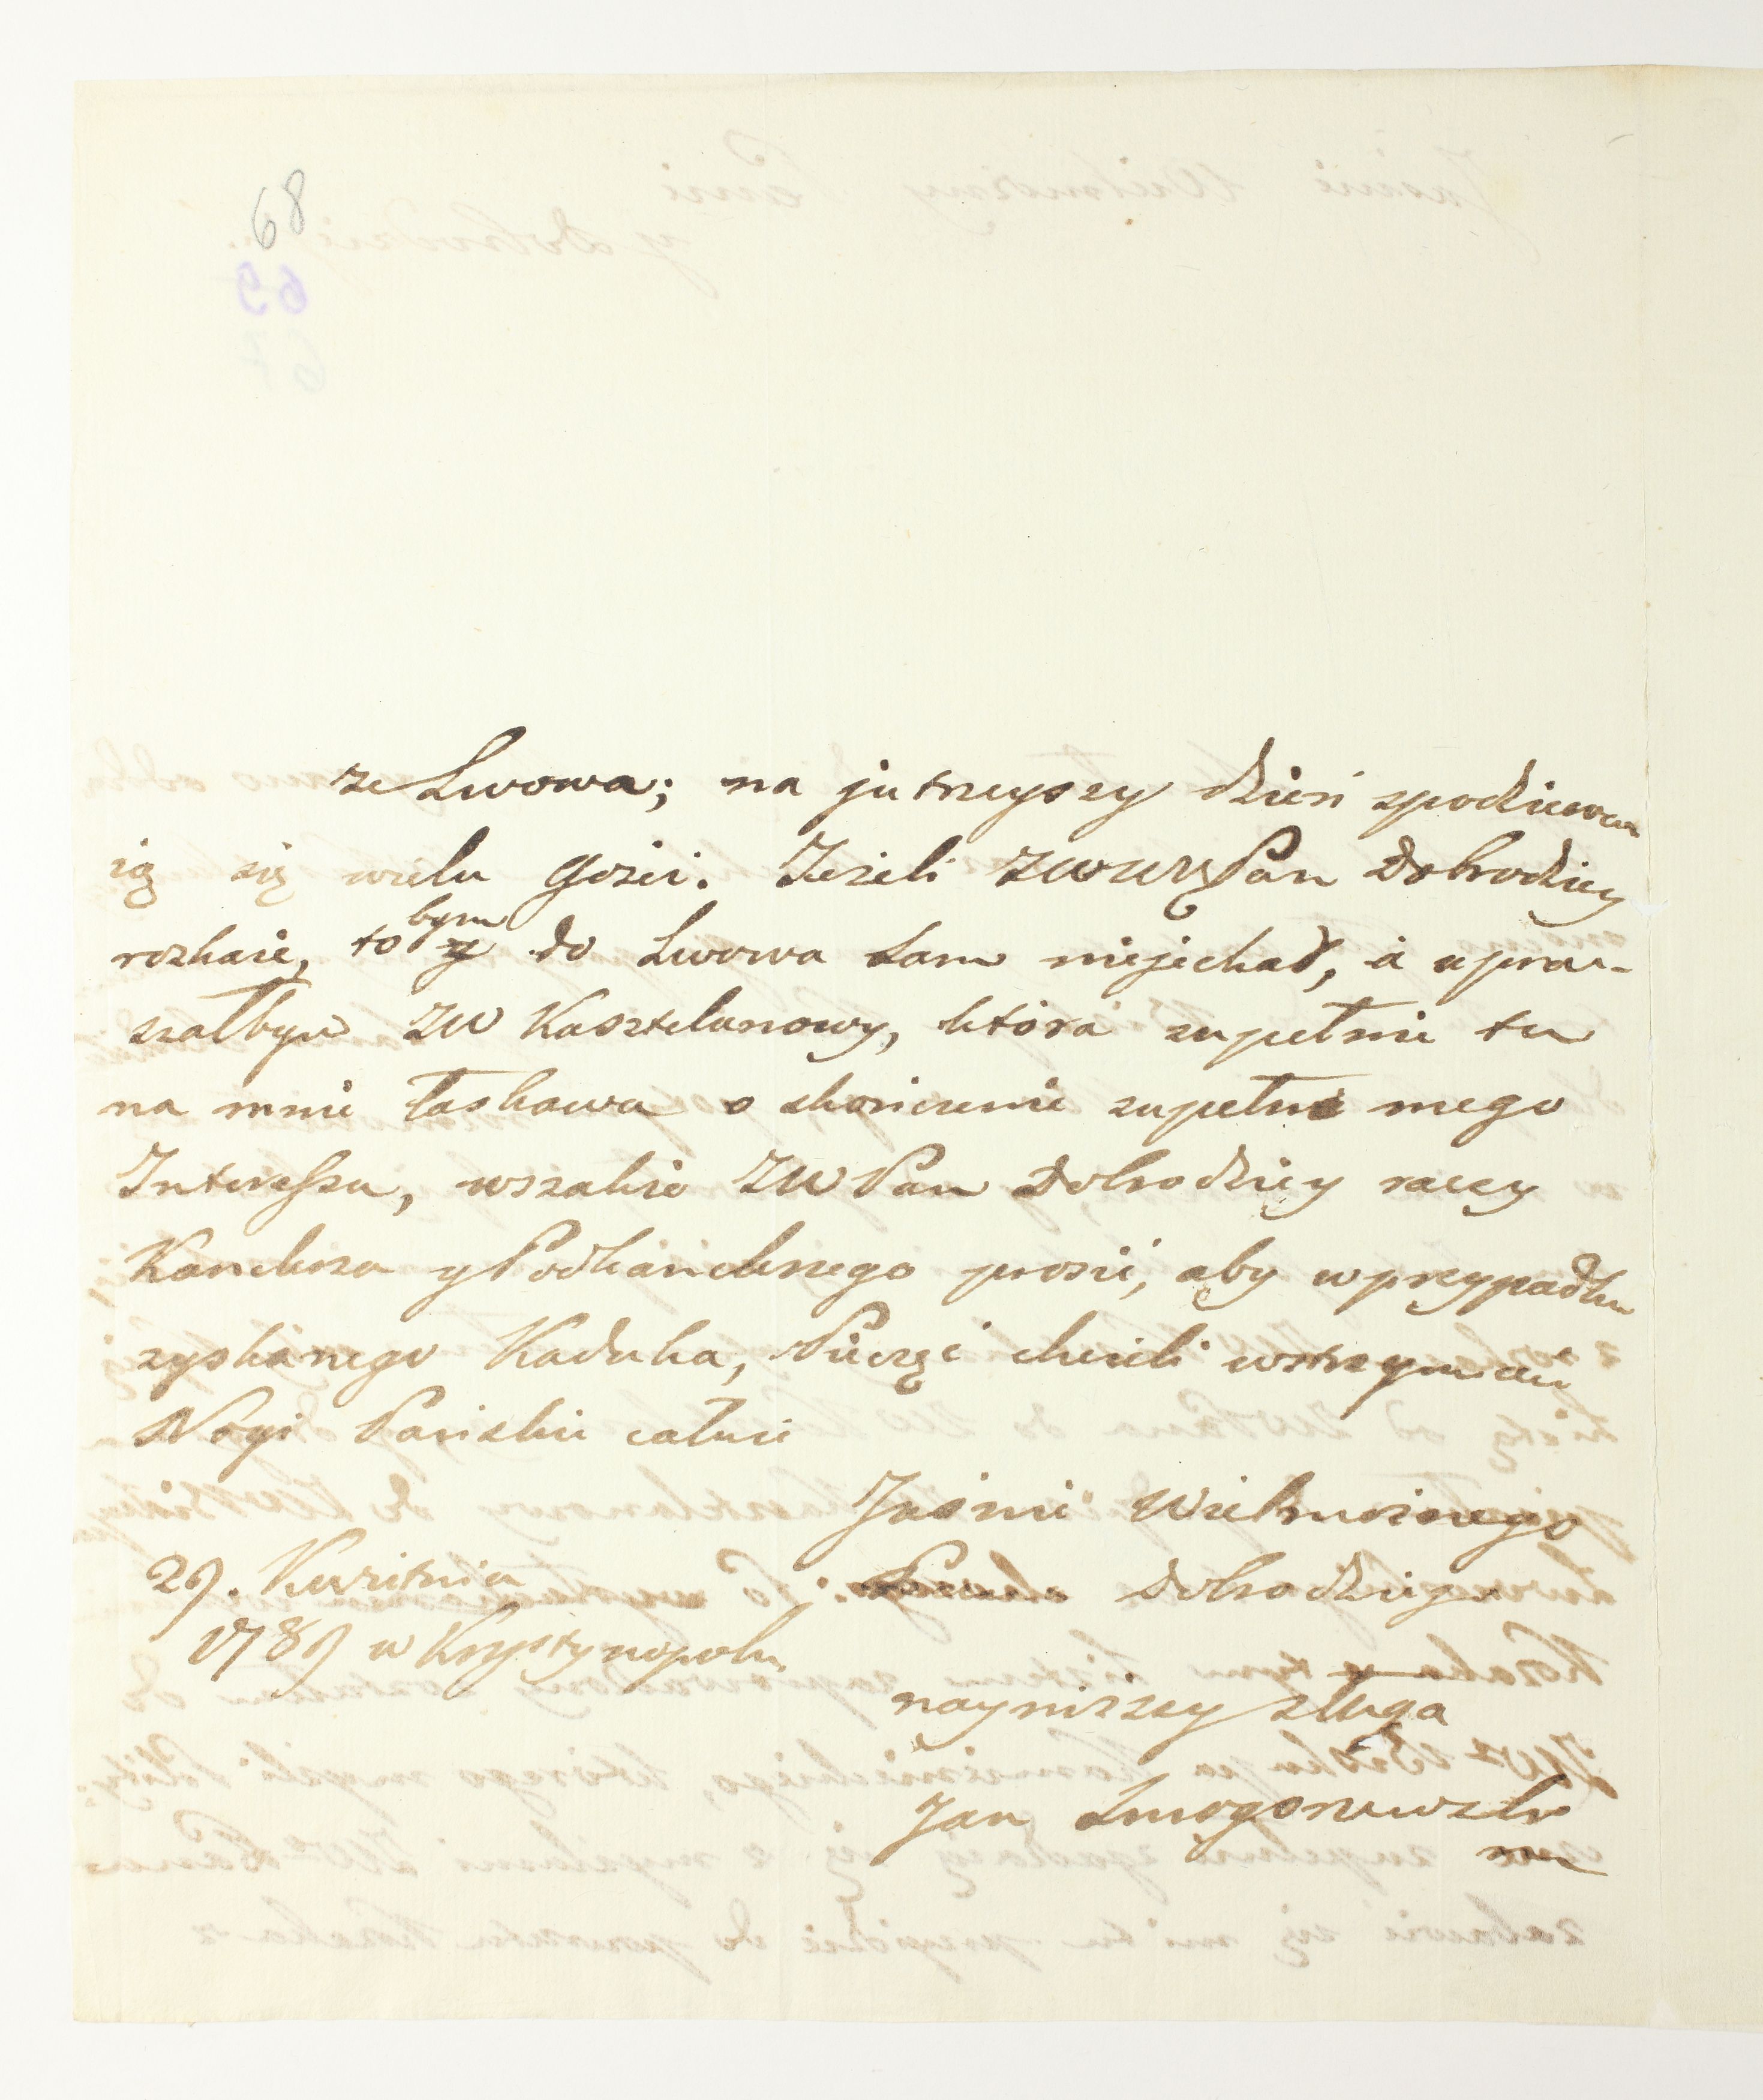 68
ze Lwowa; na jutrzeyszy dzień spodziewa
ią się wielu Gosci. Jezeli JWWPan Dobrodziey
rozkaże, to bym do Lwowa sam niejechał, à upra-
szałbym JW Kasztelanowy, która zupełnie tu
na mnie łaskawa o skończenie zupełne mego
Interessu, wszakże JWPan Dobrodziey raczy
Kanclerza y Podkanclerzego prosić, aby w przypadku
zyskanego Kaduka, Pieczęci chcieli wstrzymać
Nogi Pańskie całuie
Jaśnie Wielmożnego
Dobrodzieja
29. Kwietnia
1789 w Krystynopolu
nayniższy sługa
Jan